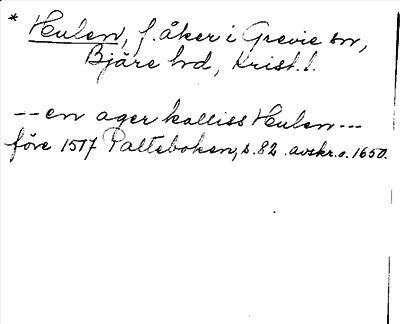 * Heulen, f. åker i Grevie sn,
Bjäre hd, Krist. l.
-- en ager kalliss Heulen ---
före 1517 Palteboken, s. 82 avskr. o. 1650.